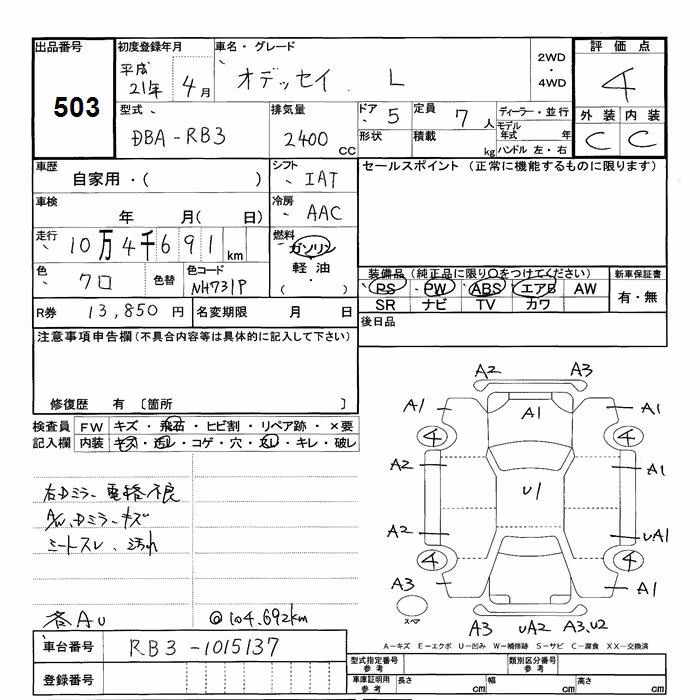 出品番号 初度登録年月 車名・グレード 評価点
503
平成21年 4月
オデッセイ L
2WD ・ 4WD
4
型式 排気量 ドア 5 定員 7人 ディーラー・並行 外装 内装
DBA-RB3 2400cc 形状 積載 kg モデル年式 年 C C
ハンドル 左・右
車歴 シフト セールスポイント (正常に機能するものに限ります)
自家用・( ) IAT
車検 冷房
年 月( 日) AAC
走行 燃料
10万4千691km ガソリン
・
軽油
・
( )
色 色替 色コード 装備品 (純正品に限り○をつけてください) 新車保証書
クロ NH731P PS PW ABS エアB AW 有・無
SR ナビ TV カワ
R券 13,850円 名変期限 月 日 後日品
注意事項申告欄 (不具合内容等は具体的に記入して下さい)
修復歴 有 〔箇所 〕
検査員 FW キズ・飛石・ヒビ割・リペア跡・×要
記入欄 内装 キズ・汚レ・コゲ・穴・スレ・キレ・破レ
右Dミラー電格不良
A/W、Dミラーキズ
シートスレ、汚れ
各AU @104,692km
A2 A3
A1 A1 A1
4 4
A2 A1
U1
A2 UA1
4 4
A3 A1
スペア
A3 UA2 A3,U2
A-キズ E-エクボ U-凹み W-補修跡 S-サビ C-腐食 XX-交換済
車台番号 RB3-1015137
登録番号
型式指定番号 参考 類別区分番号 参考
車庫証明用 参考 長さ cm 幅 cm 高さ cm